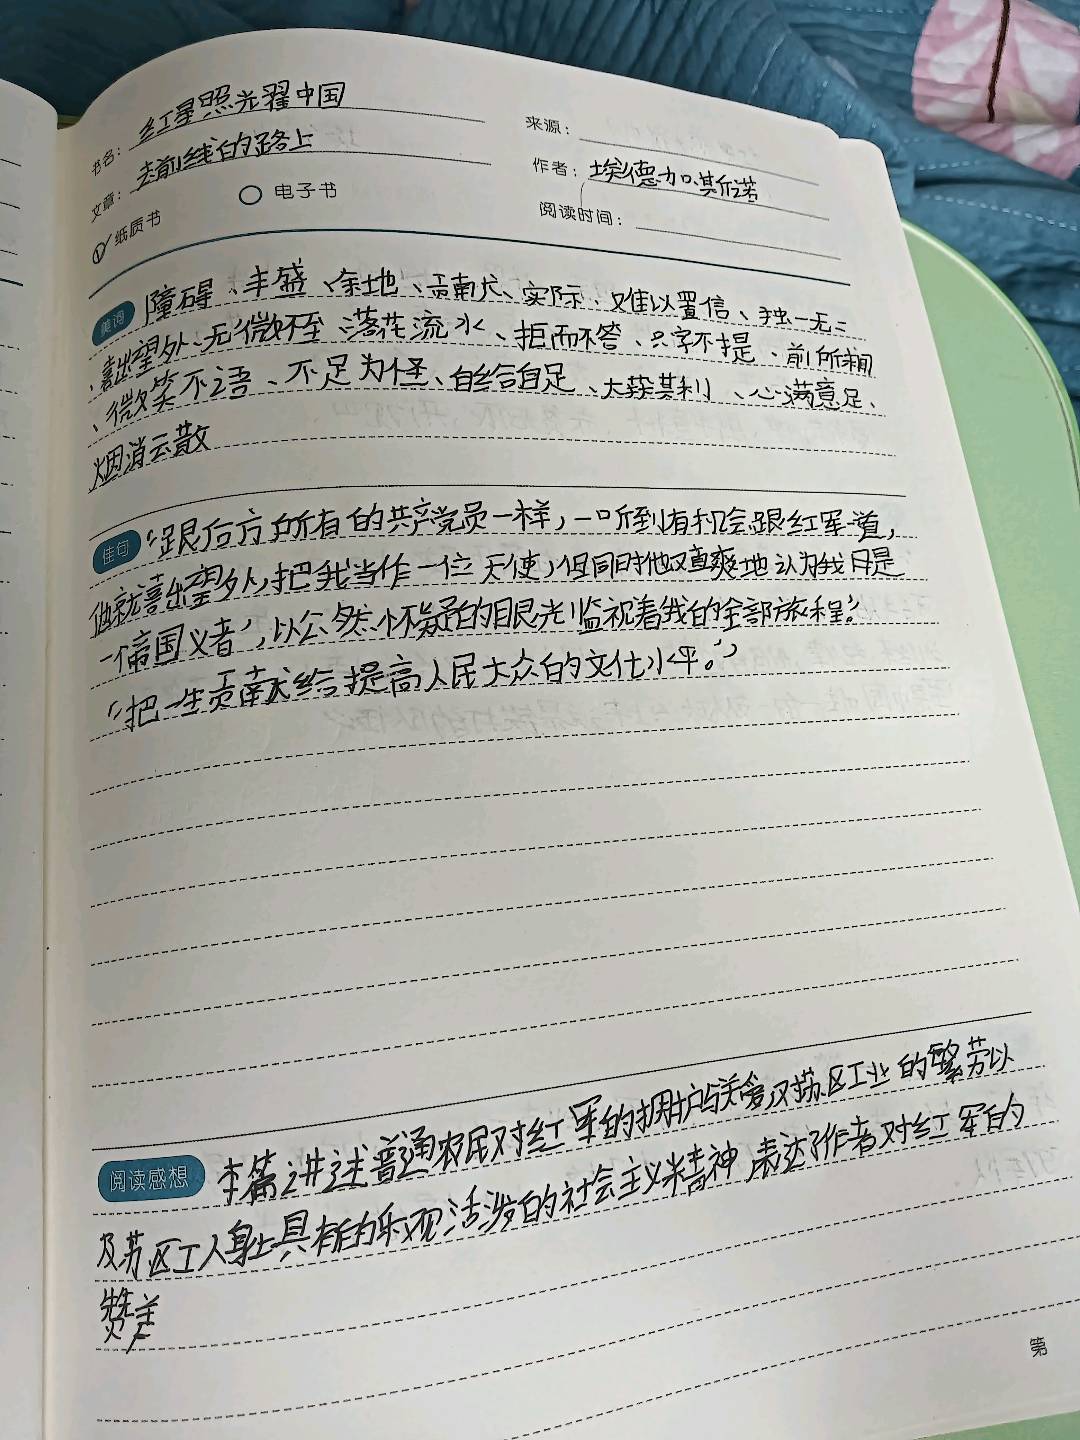 书名：红星照光耀中国
来源：
文章：去前线的路上
作者：埃德加·斯诺
纸质书 电子书
阅读时间：
美词 障碍、丰盛、余地、贡献、实际、难以置信、独一无二
、喜出望外、无微不至、落花流水、拒而不答、只字不提、前所
、微笑不语、不足为怪、自给自足、大获其利、心满意足、
烟消云散
佳句 “跟后方所有的共产党员一样，一听到有机会跟红军一道，
他就喜出望外，把我当作一位天使，但同时他又直爽地认为我是
一‘帝国义者’，以公然怀疑的眼光监视着我的全部旅程。”
“把一生贡献给提高人民大众的文化水平。”
阅读感想 本篇讲述普通农民对红军的拥护与关爱以及苏区工业的繁劳以
及苏区工人身上具有的乐观活泼的社会主义精神 表达了作者对红军的
赞美
第